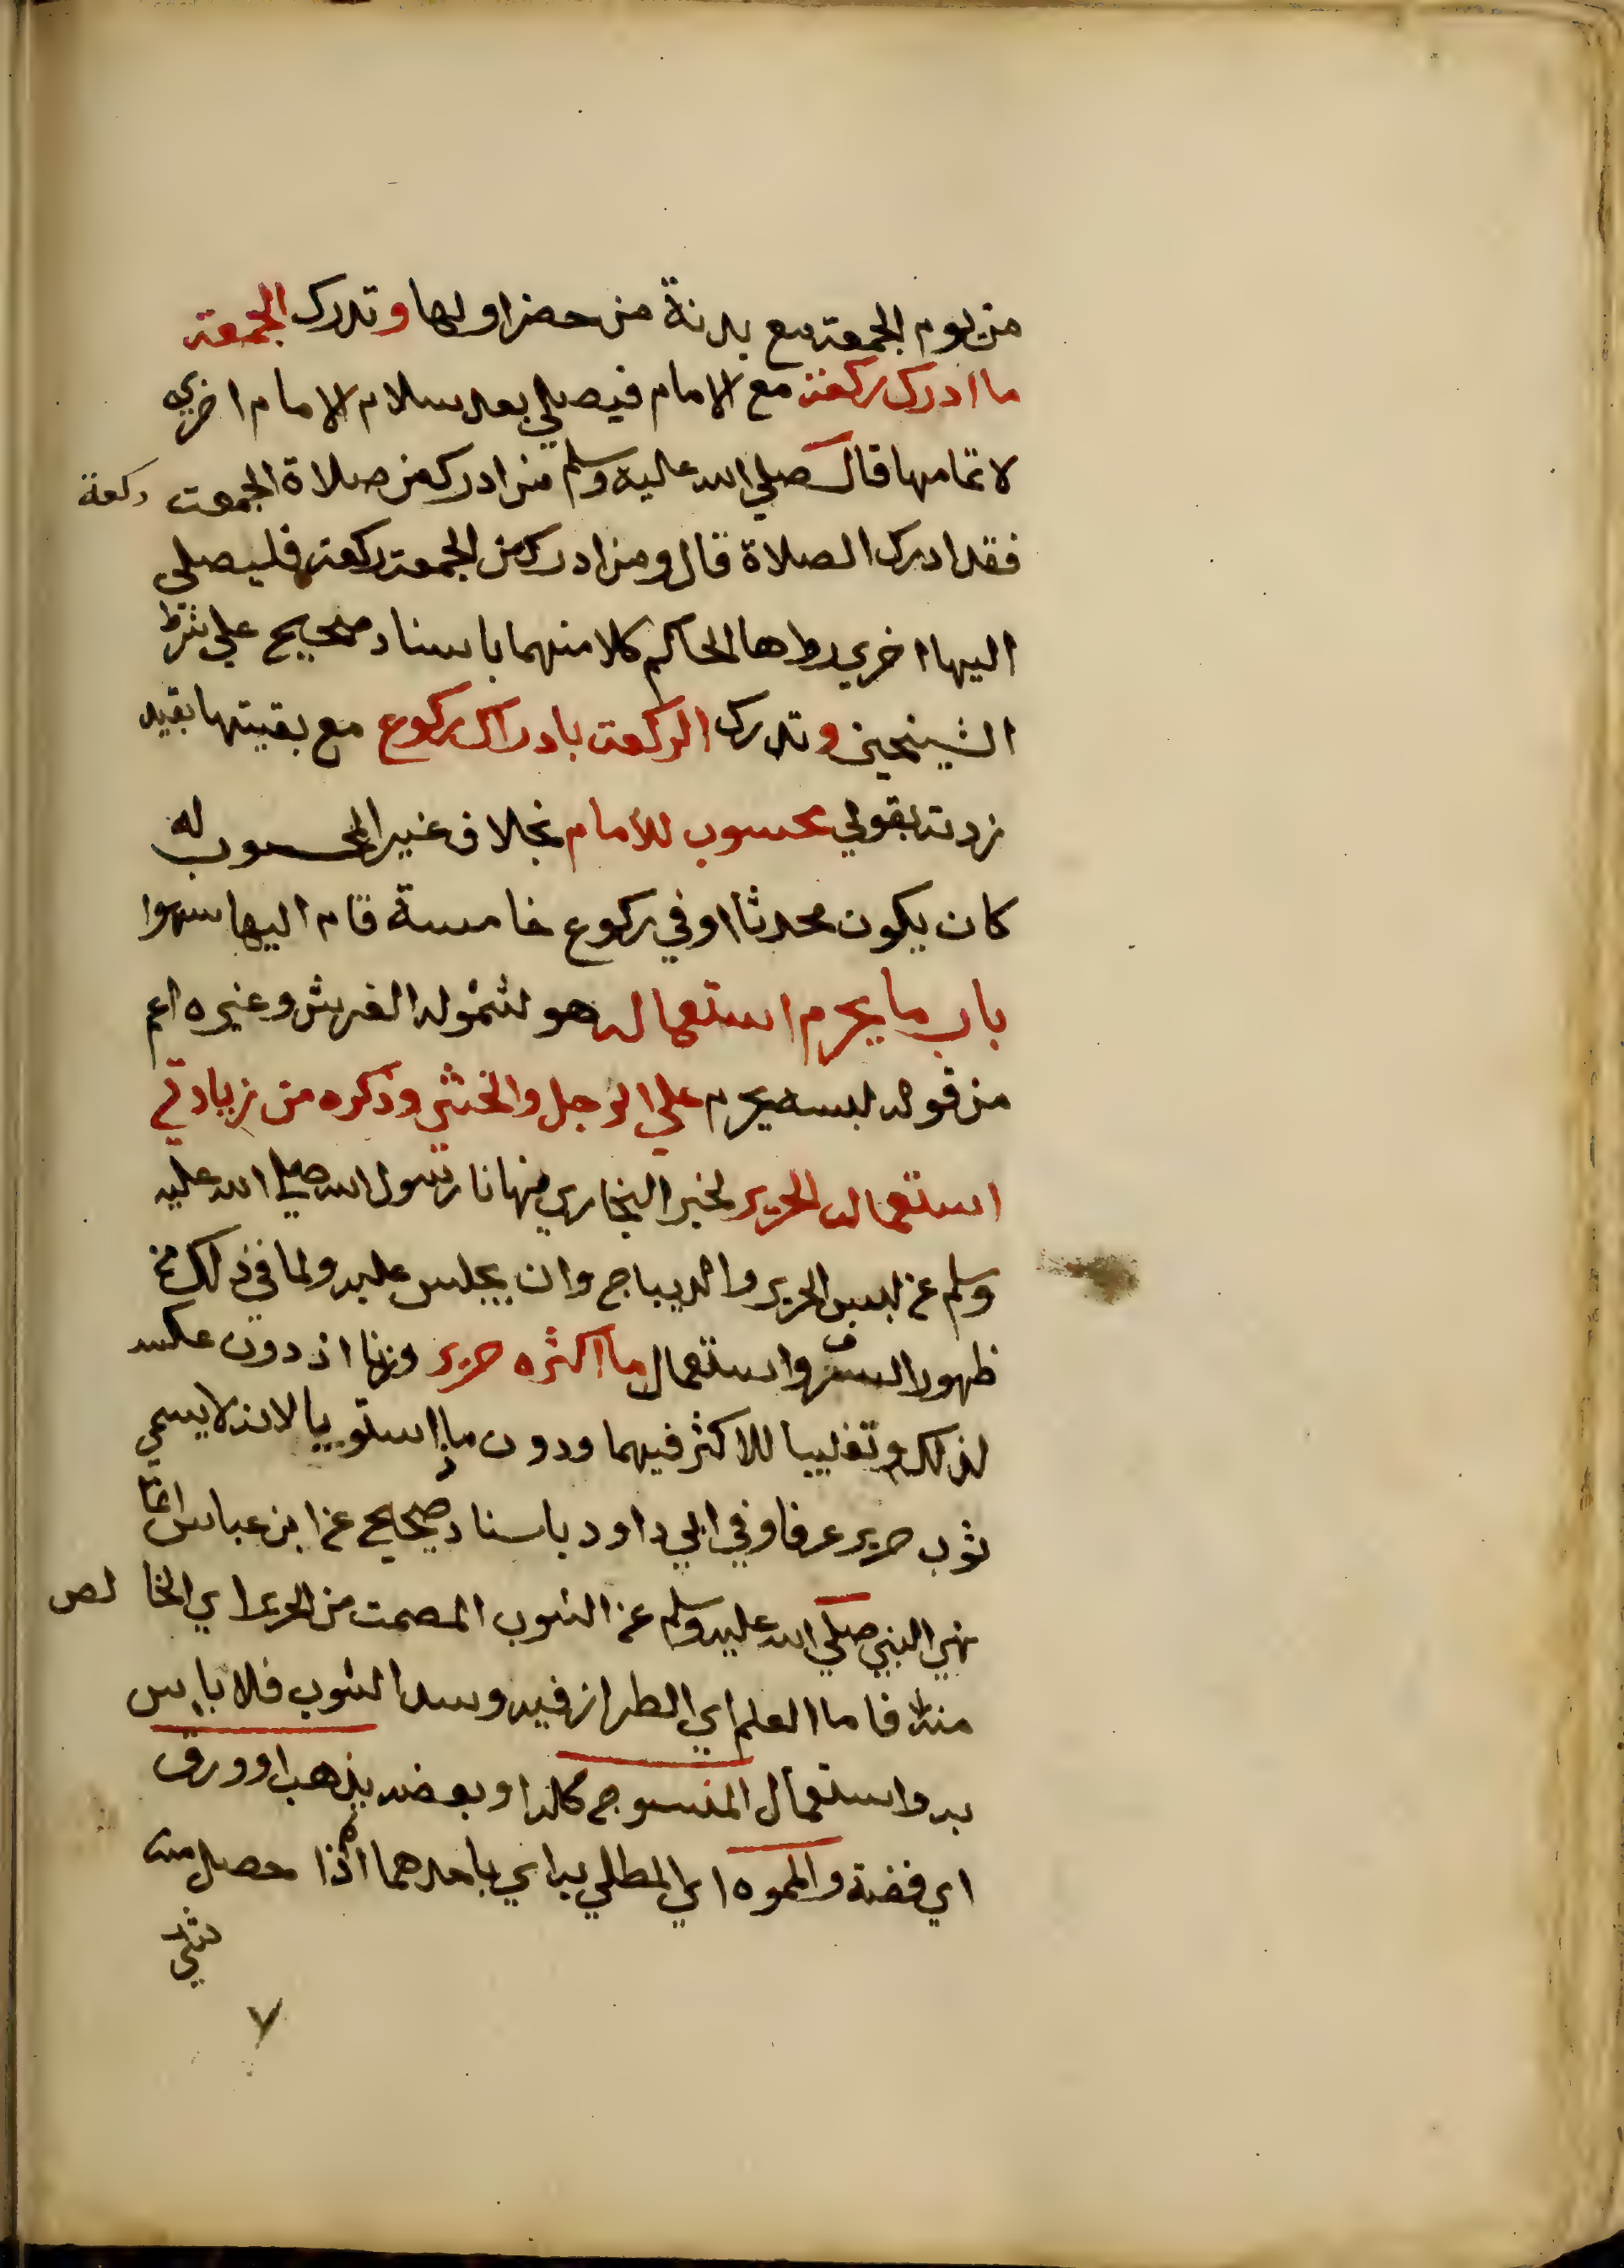 من يوم الجمعة مع بدنة من حضر اولها وتدرك الجمعة
ما ادرك ركعة مع الامام فيصلي بعد سلام الامام اخري
لاتمامها قال صلي الله عليه وسلم من ادرك من صلاة الجمعة ركعة
فقد ادرك الصلاة قال ومن ادرك من الجمعة ركعة فليصلي
اليها اخري رواها الحاكم كلا منهما باسناد صحيح علي شرط
الشيخين وتدرك الركعة بادراك ركوع مع بقيتها بقيد
زدته بقولي محسوب للامام بخلاف غير المحسوب له
كان يكون محدثا او في ركوع خامسة قام اليها سهوا
باب ما يحرم استعماله هو لشموله الفرش وغيره اعم
من قوله لبسه يحرم علي الرجل والخنثي وذكره من زيادتي
استعمال الحرير لخبر البخاري نهانا رسول الله صلي الله عليه
وسلم عن لبس الحرير والديباج وان يجلس عليه ولما في ذلك من
ظهور السرف واستعمال ما اكثره حرير وزنا اذ دون عكسه
لذلك وتغليبا للاكثر فيهما ودون ما استويا لانه لا يسمي
ثوب حرير عرفا وفي ابي داود باسناد صحيح عن ابن عباس انما
نهي النبي صلي الله عليه وسلم عن الثوب المصمت من الحرير اي الخالص
منه فاما العلم اي الطراز فيه وسدا الثوب فلا باس
به واستعمال المنسوج كله او بعضه بذهب او ورق
اي فضة والمموه اي المطلي به اي باحدهما اذا حصل منه
شي
٧